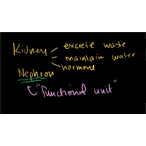 Kidney excrete waste
maintain water
hormone
Nephron
"functional unit"